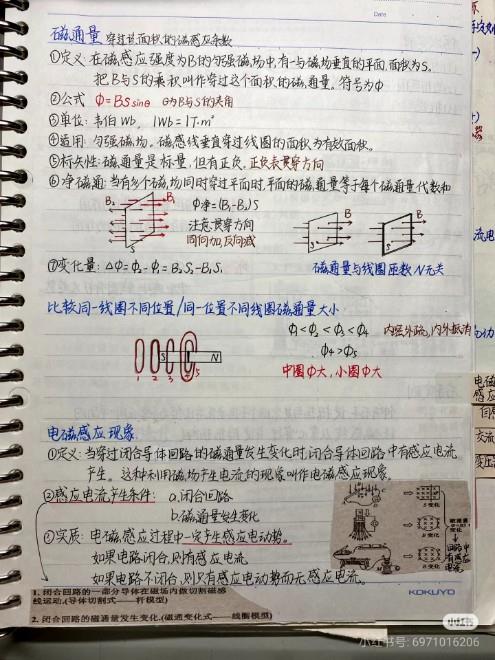 Date
磁通量 穿过某面积的磁感应条数
①定义: 在磁感应强度为B的匀强磁场中,有一与磁场垂直的平面,面积为S,
把B与S的乘积叫作穿过这个面积的磁通量。符号为Φ
②公式 Φ=BSsinθ θ为B与S的夹角
③单位: 韦伯 Wb, 1Wb=1T·m²
④适用: 匀强磁场。磁感线垂直穿过线圈的面积为有效面积。
⑤标矢性: 磁通量是标量,但有正负,正负表贯穿方向
⑥净磁通: 当有多个磁场同时穿过平面时,平面的磁通量等于每个磁通量代数和
B₂ B₁ S
Φ净=(B₁-B₂)S
注意贯穿方向
同向加,反向减
S B₁ S B₂
⑦变化量: ΔΦ=Φ₂-Φ₁=B₂S₂-B₁S₁
磁通量与线圈匝数N无关
比较同一线圈不同位置/同一位置不同线圈磁通量大小
Φ₁<Φ₂<Φ₃<Φ₄ 内强外疏,内外抵消
Φ₄>Φ₅
中圈Φ大,小圈Φ大
S N
1 2 3 4 5
电磁感应现象
①定义: 当穿过闭合导体回路的磁通量发生变化时,闭合导体回路中有感应电流
产生。这种利用磁场产生电流的现象叫作电磁感应现象。
②感应电流产生条件: a.闭合回路
b.磁通量发生变化
③实质: 电磁感应过程中一定产生感应电动势。
如果电路闭合,则有感应电流
如果电路不闭合,则只有感应电动势而无感应电流。
S变化
B变化
B变化
1. 闭合回路的一部分导体在磁场内做切割磁感
线运动.(导体切割式——杆模型)
2. 闭合回路的磁通量发生变化.(磁通变化式——线圈模型)
KOKUYO
小红书
小红书号: 6971016206
流电
电磁
感应
交流
变压